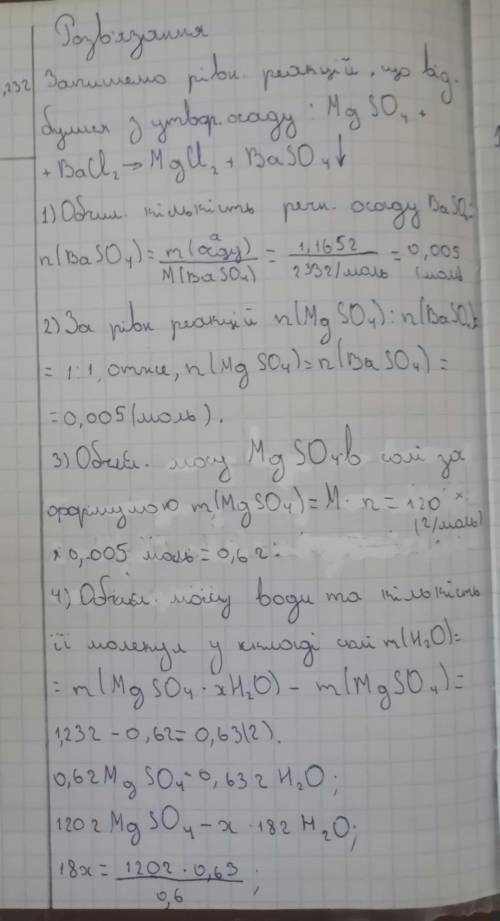 Розв'язання
,232 Запишемо рівн. реакцій, що від-
булися з утвор. осаду: MgSO₄ +
+ BaCl₂ → MgCl₂ + BaSO₄↓
1) Обчил. кількість речн. осаду BaSO₄:
n(BaSO₄) = m(осаду) / M(BaSO₄) = 1,165г / 233г/моль = 0,005 (моль)
2) За рівн реакцій n(MgSO₄) : n(BaSO₄) =
= 1:1, отже, n(MgSO₄) = n(BaSO₄) =
= 0,005 (моль).
3) Обчисл. масу MgSO₄ в солі за
формулою m(MgSO₄) = M · n = 120 (г/моль) ×
× 0,005 моль = 0,6 г.
4) Обчисл. масу води та кількість
її молекул у складі солі m(H₂O) =
= m(MgSO₄ · xH₂O) – m(MgSO₄) =
1,23г – 0,6г = 0,63(г).
0,6г MgSO₄ - 0,63г H₂O;
120г MgSO₄ – x · 18г H₂O;
18x = 120г · 0,63 / 0,6 ;